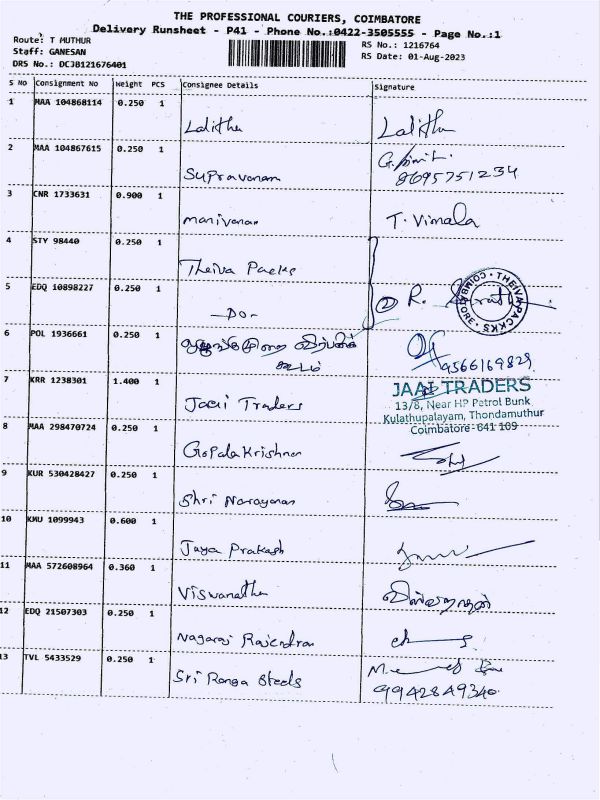 THE PROFESSIONAL COURIERS, COIMBATORE
Delivery Runsheet - P41 - Phone No.:0422-3505555 - Page No.:1
Route: T MUTHUR
Staff: GANESAN
DRS No.: DCJB121676401
RS No.: 1216764
RS Date: 01-Aug-2023
S No Consignment No Weight PCS Consignee Details Signature
1 MAA 104868114 0.250 1
Lalitha Lalitha
2 MAA 104867615 0.250 1
Supravanam 8695751234
3 CNR 1733631 0.900 1
Manivanan T. Vimala
4 STY 98440 0.250 1
Theiva Packs
5 EDQ 10898227 0.250 1
-DO- 2 R.
COIMBATORE THEIVA PACKS
6 POL 1936661 0.250 1
விற்பனை 9566169829
கூடம்
7 KRR 1238301 1.400 1
Jaai Traders
JAAI TRADERS
13/8, Near HP Petrol Bunk
Kulathupalayam, Thondamuthur
Coimbatore-641 109
8 MAA 298470724 0.250 1
GopalaKrishnan
9 KUR 530428427 0.250 1
Shri Narayanan
10 KMU 1099943 0.600 1
Jaya Prakash
11 MAA 572608964 0.360 1
Viswanathan விஸ்வநாதன்
12 EDQ 21507303 0.250 1
Nagaraj Rajendran
13 TVL 5433529 0.250 1
Sri Ranga Steels 9942849340